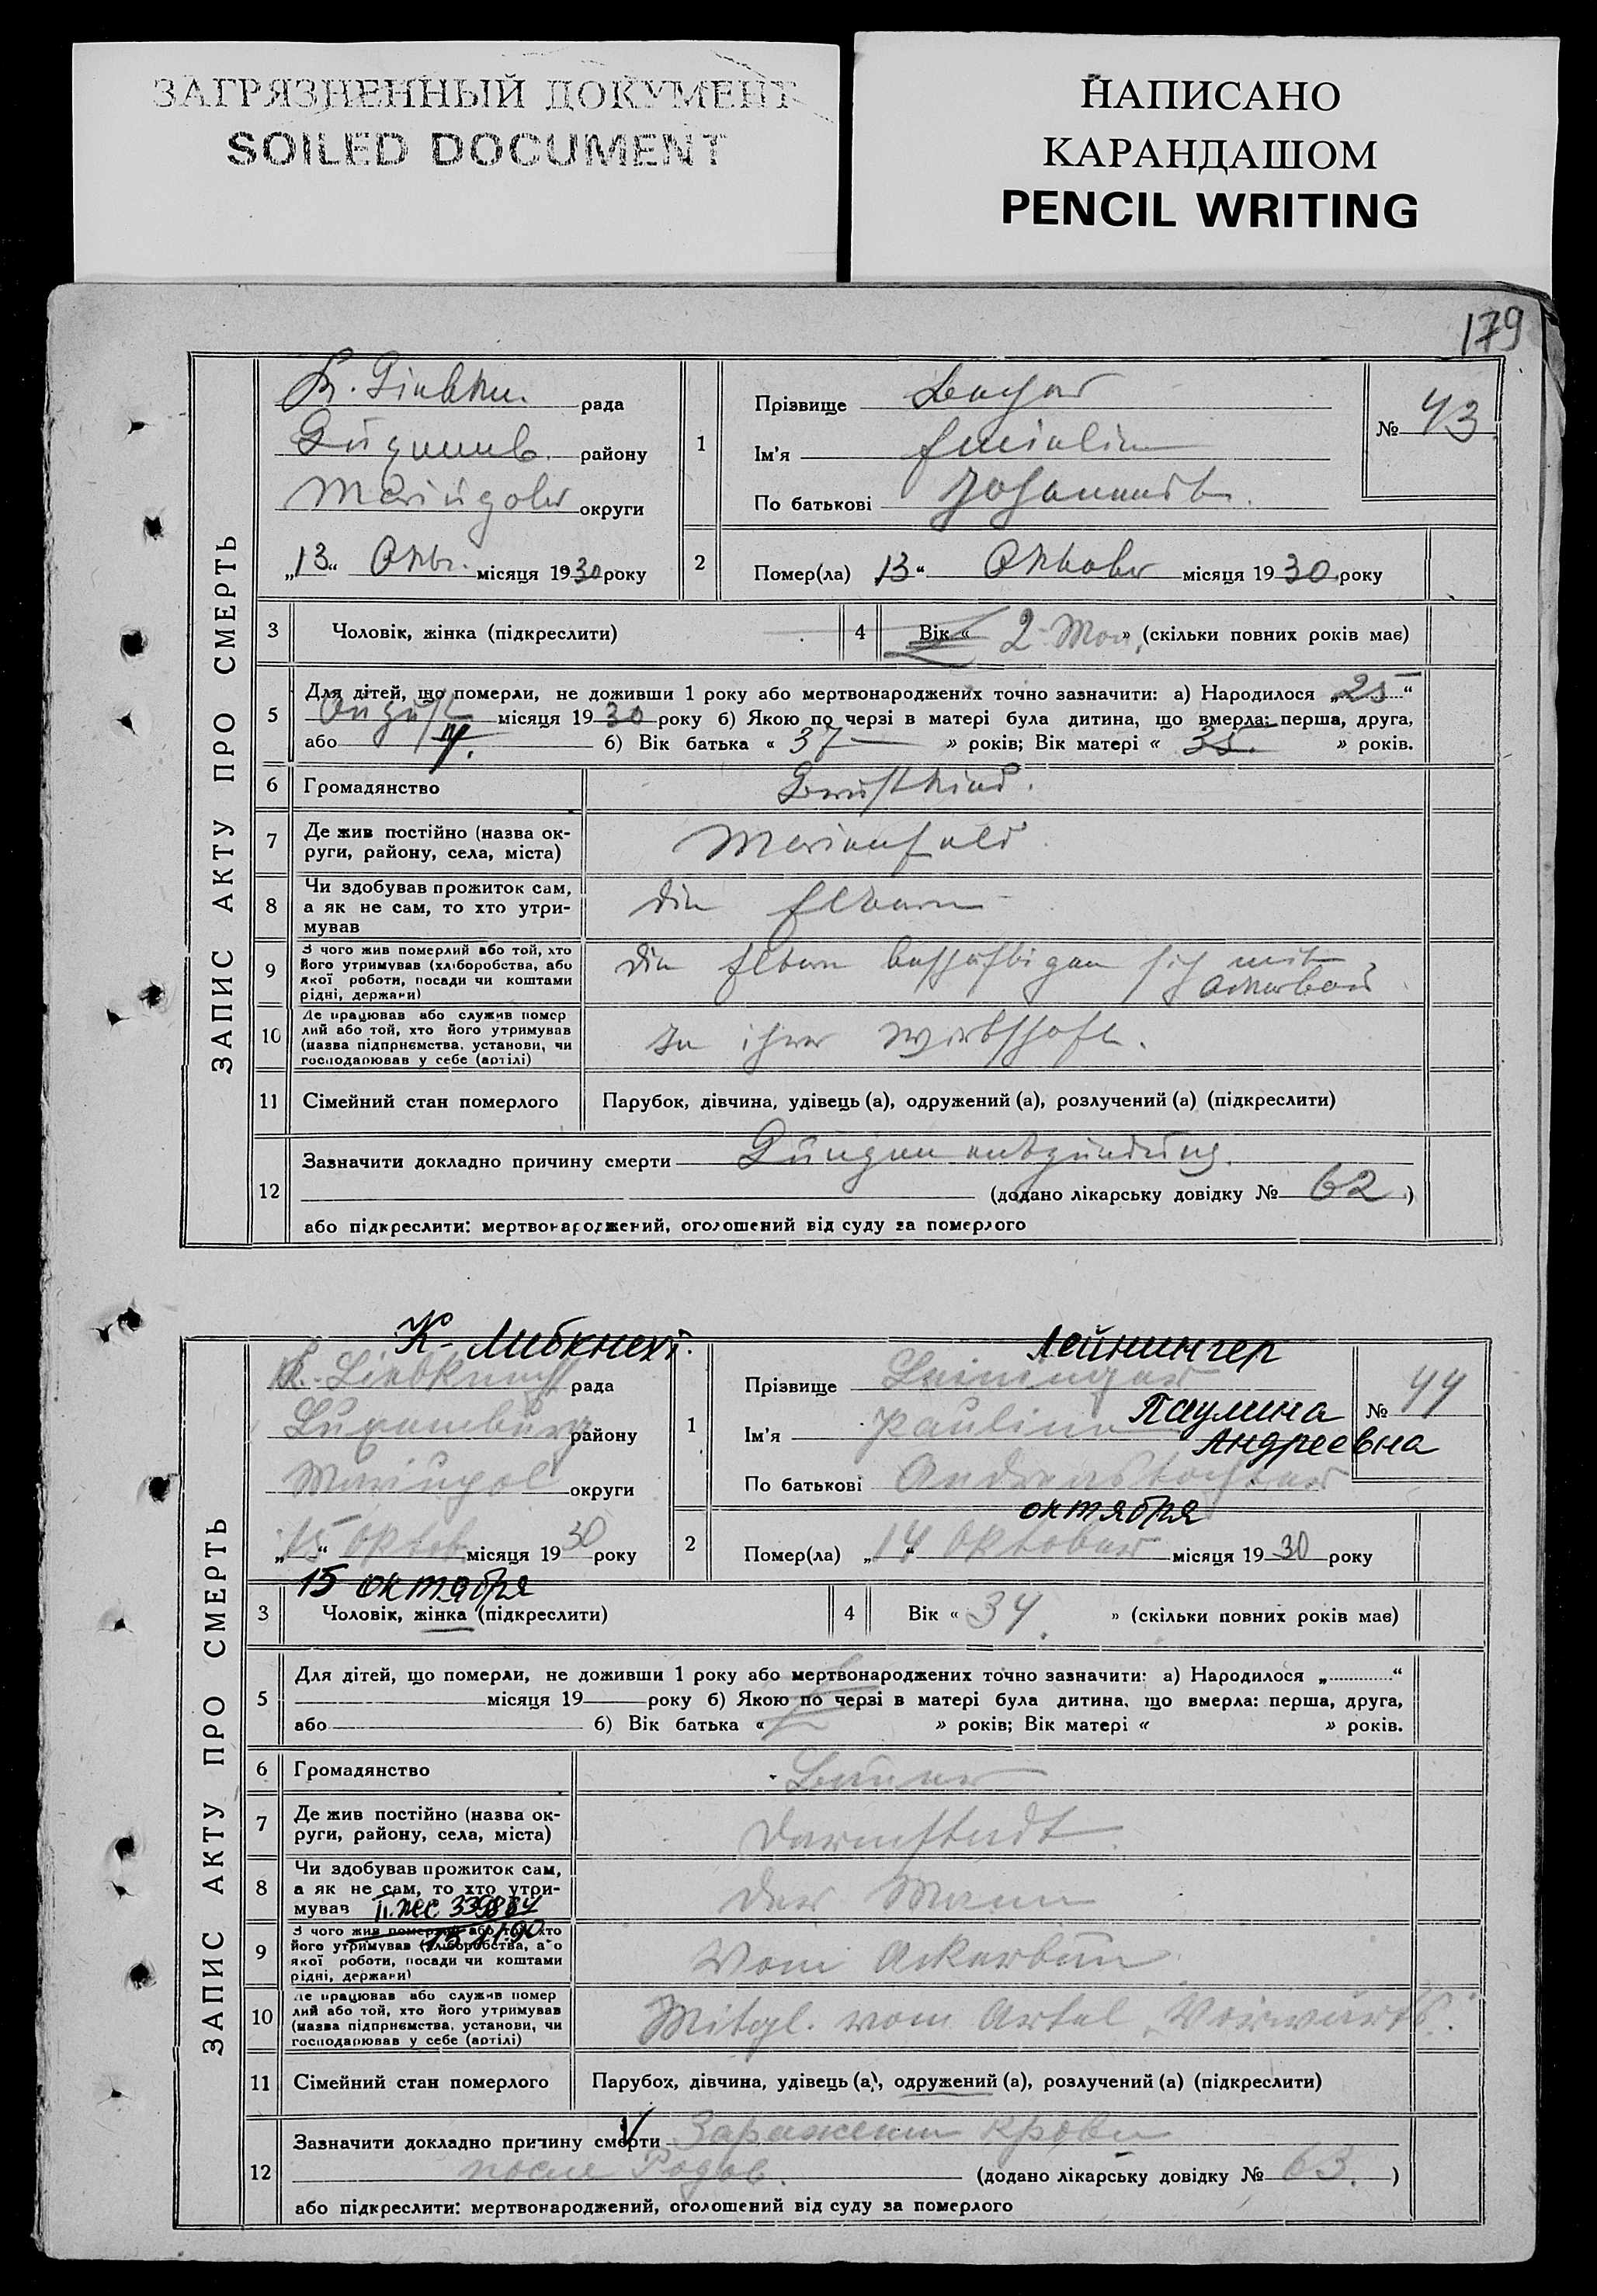 ЗАГРЯЗНЕННЫЙ ДОКУМЕНТ
SOILED DOCUMENT
НАПИСАНО
КАРАНДАШОМ
PENCIL WRITING
179
ЗАПИС АКТУ ПРО СМЕРТЬ
K. Liebkn. рада
району
Mariupoler округи
„13“ Oktb. місяця 1930 року
1
Прізвище
Ім'я Emielina
По батькові Johannest.
№ 43
2
Помер(ла) „13“ Oktober місяця 1930 року
3 Чоловік, жінка (підкреслити)
4 Вік « 2 Mon. » (скільки повних років має)
5 Для дітей, що померли, не доживши 1 року або мертвонароджених точно зазначити: а) Народилося „25“
August місяця 1930 року б) Якою по черзі в матері була дитина, що вмерла: перша, друга,
або б) Вік батька « 37 » років; Вік матері « 35. » років.
6 Громадянство Brustkind.
7 Де жив постійно (назва округи, району, села, міста) Marienfeld
8 Чи здобував прожиток сам, а як не сам, то хто утримував die Eltern
9 З чого жив померлий або той, хто його утримував (хліборобства, або якої роботи, посади чи коштами рідні, держави) die Eltern beschäftigen sich mit Ackerbau.
10 Де працював або служив померлий або той, хто його утримував (назва підприємства, установи, чи господарював у себе (артілі) In ihrer Wirtschaft.
11 Сімейний стан померлого Парубок, дівчина, удівець (а), одружений (а), розлучений (а) (підкреслити)
12 Зазначити докладно причину смерти Lungenentzündung.
(додано лікарську довідку № 62 )
або підкреслити: мертвонароджений, оголошений від суду за померлого
ЗАПИС АКТУ ПРО СМЕРТЬ
К-Либкнехт.
K. Liebknecht рада
Luxemburg району
Mariupol округи
„15“ Oktob. місяця 1930 року
15 октября
1
Лейнингер
Прізвище Leininger
Ім'я Paulina Паулина
Андреевна
По батькові Andreastochter
№ 44
октября
2
Помер(ла) „14“ Oktober місяця 1930 року
3 Чоловік, жінка (підкреслити)
4 Вік « 34. » (скільки повних років має)
5 Для дітей, що померли, не доживши 1 року або мертвонароджених точно зазначити: а) Народилося „ “
місяця 19 року б) Якою по черзі в матері була дитина, що вмерла: перша, друга,
або б) Вік батька « » років; Вік матері « » років.
6 Громадянство Bauer
7 Де жив постійно (назва округи, району, села, міста) Darmstadt
8 Чи здобував прожиток сам, а як не сам, то хто утримував der Mann
9 З чого жив померлий або той, хто його утримував (хліборобства, або якої роботи, посади чи коштами рідні, держави) Vom Ackerbau
10 Де працював або служив померлий або той, хто його утримував (назва підприємства, установи, чи господарював у себе (артілі) Mitgl. vom Artel „Vorwärts“.
11 Сімейний стан померлого Парубок, дівчина, удівець (а), одружений (а), розлучений (а) (підкреслити)
12 Зазначити докладно причину смерти Заражении крови
после Родов. (додано лікарську довідку № 63. )
або підкреслити: мертвонароджений, оголошений від суду за померлого